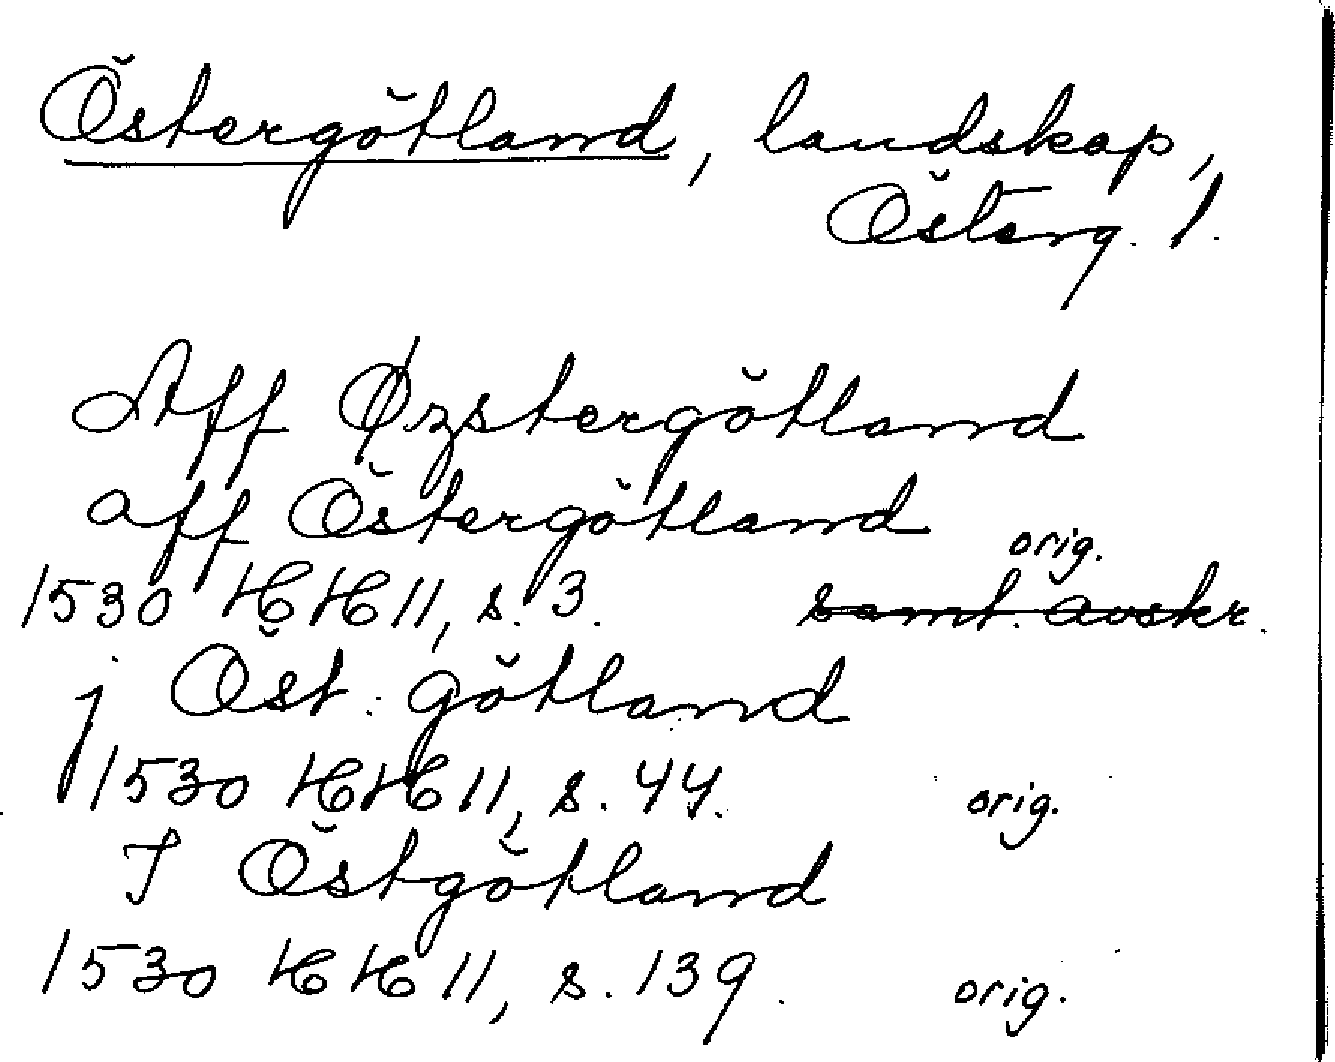 Östergötland, landskap,
Österg. l.
Aff Øzstergötland
aff Östergötland
orig.
1530 HH 11, s. 3. samt. avskr.
j Öst. götland
1530 HH 11, s. 44. orig.
I Östgötland
1530 HH 11, s. 139. orig.